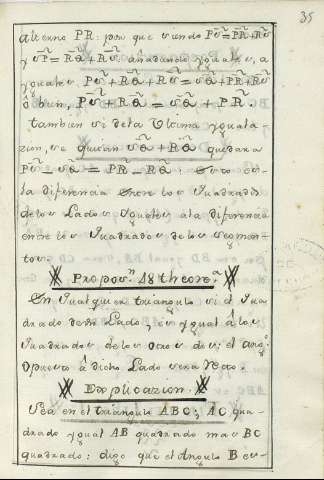 35
alterno PR: porque siendo PV²=PR²+RV²
y VA² = RA² + RV² añadiendo yguales, a
yguales, PV² + RA² + RV² = VA² + PR² + RV²
ô bien, PV² + RA² = VA² + PR².
tambien si desta Ultima yguala-
zion, se quitan VA² + RA² quedara
PV² - VA² = PR² - RA² : Esto es
la diferencia entre los Quadrados
de los Lados Yguales a la diferencia
entre los Quadrados de los segmen-
tos.
Propos.n 48 theore.a
En qualquier triangulo si el Qua
drado de un Lado, es ygual â los
Quadrados de los otros dos: el ang.
Opuesto â dicho Lado sera recto.
Explicazion.
Sea en el triangulo ABC; AC qua-
drado ygual AB quadrado mas BC
quadrado: digo que el Angulo B es-